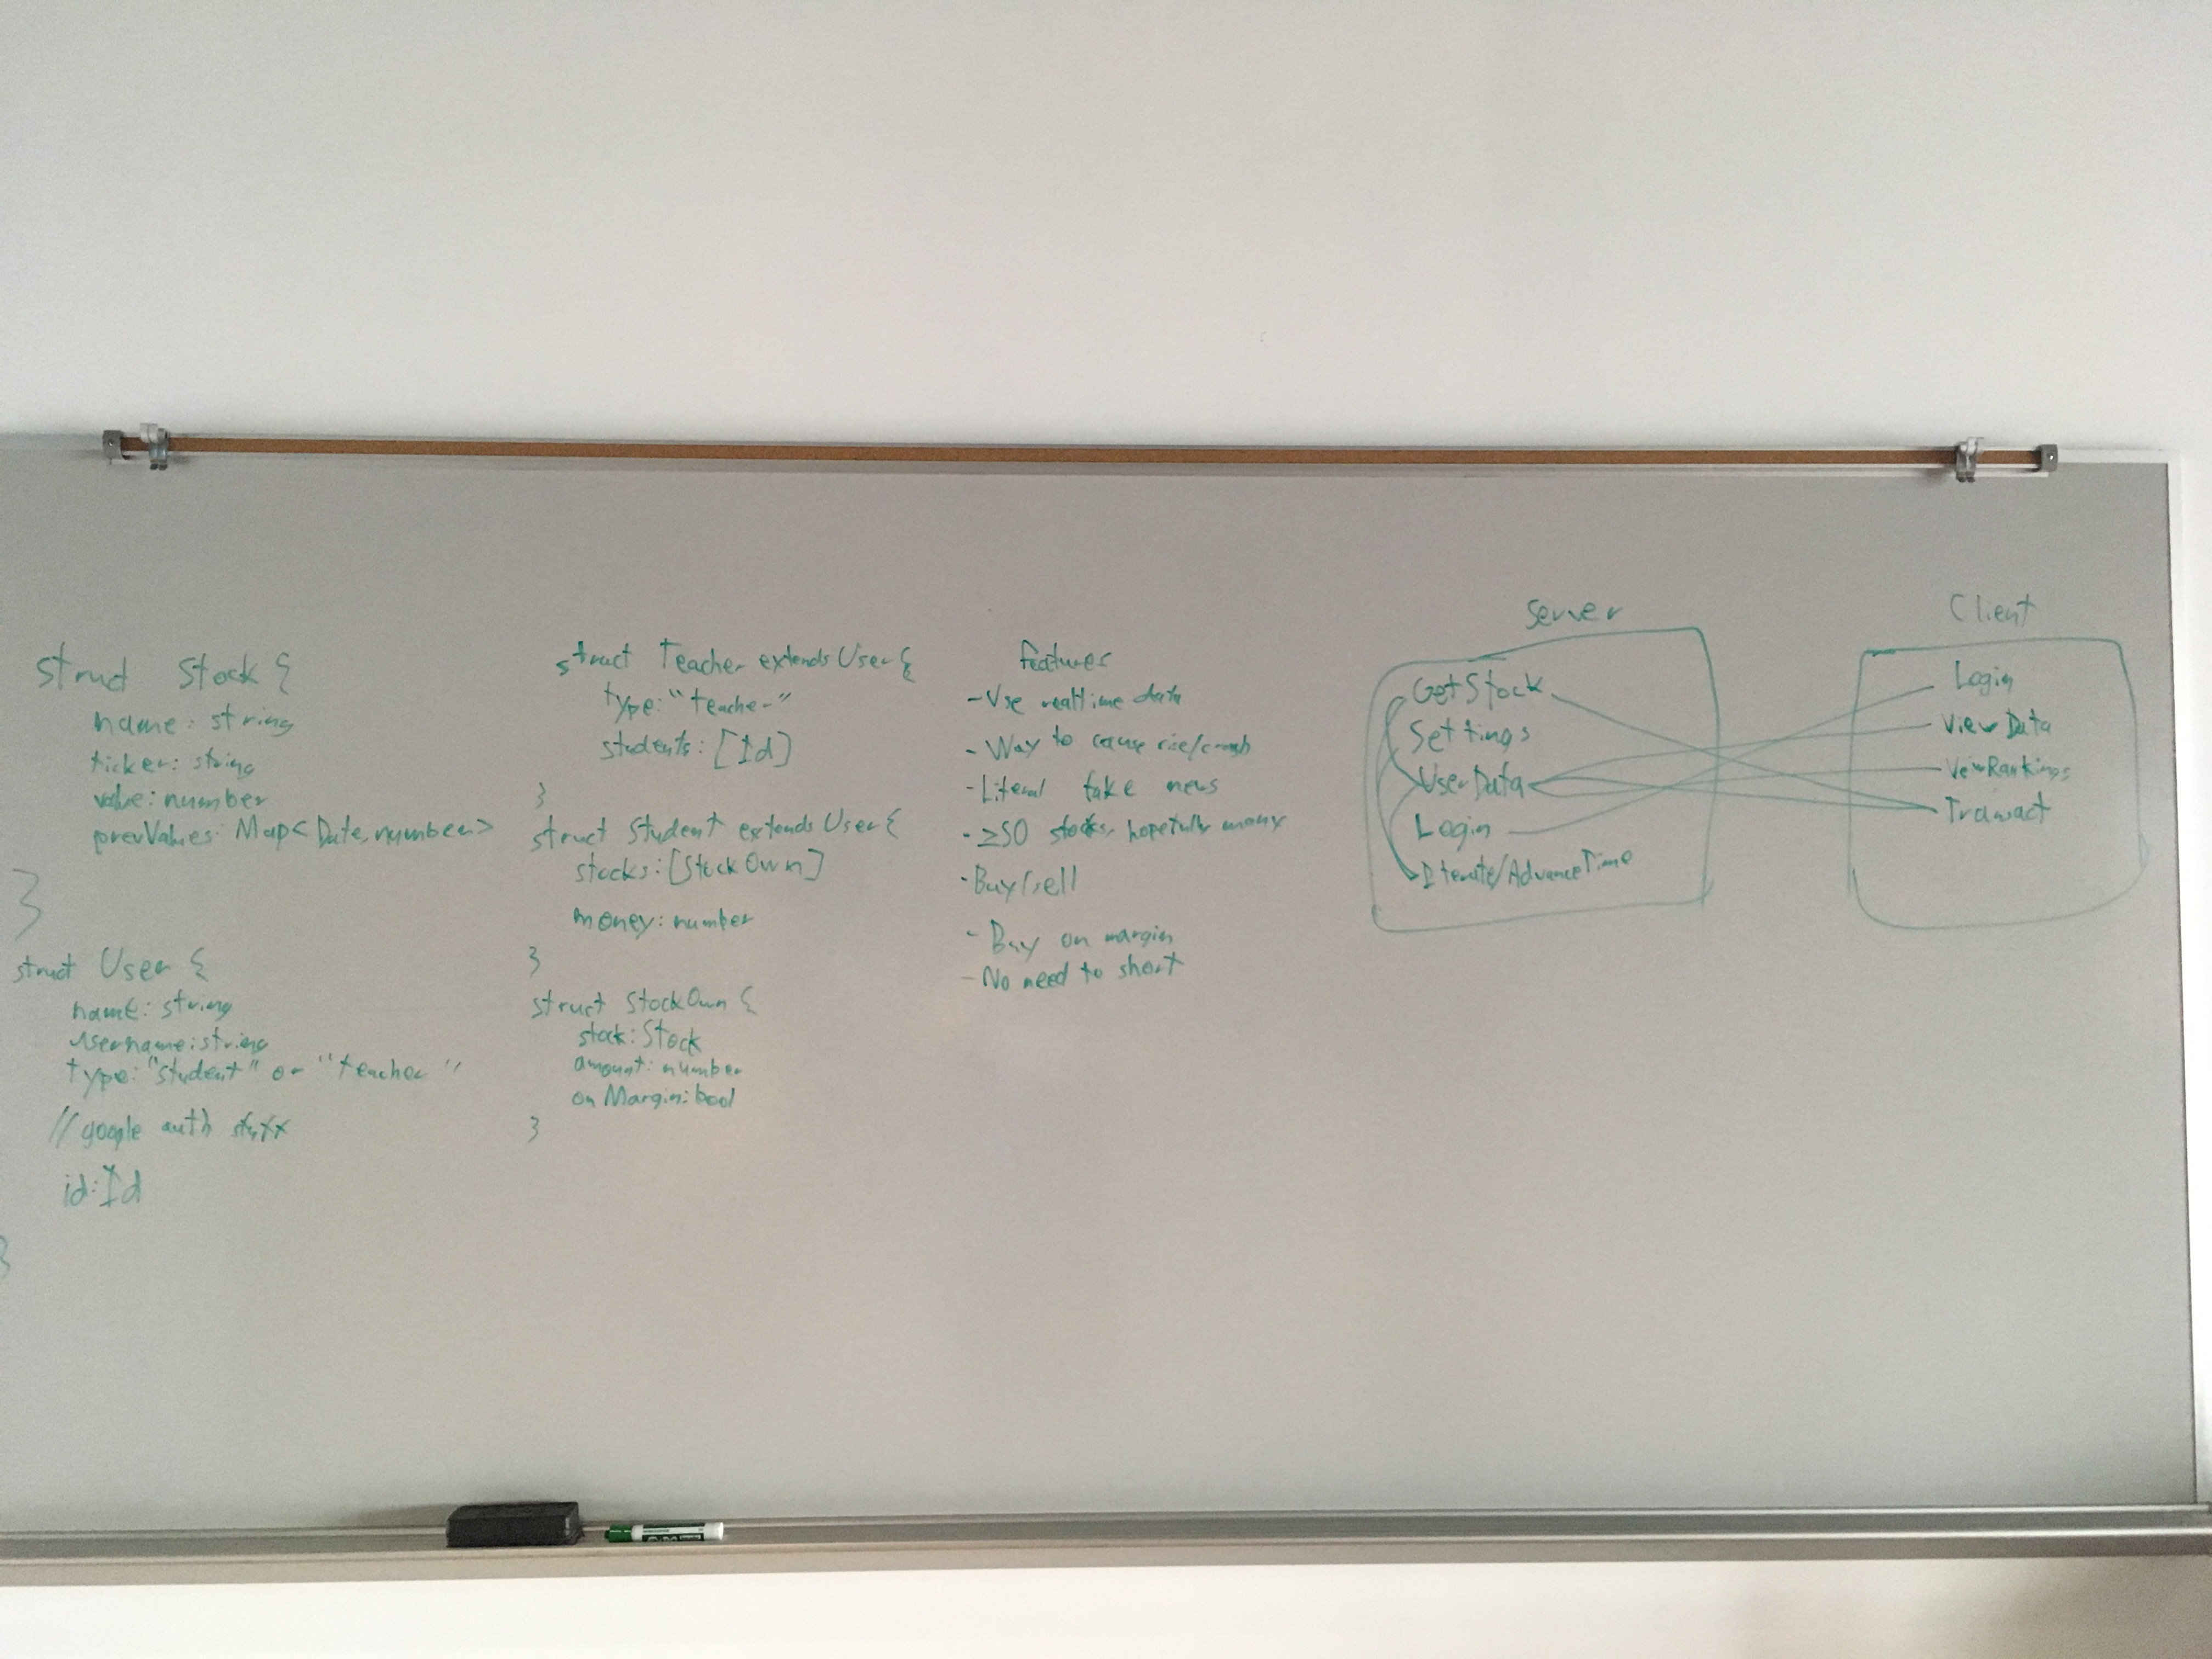 struct Stock {
name: string
ticker: string
value: number
prevValues: Map<Date, number>
}
struct User {
name: string
username: string
type: "student" or "teacher"
// google auth stuff
id: Id
}
struct Teacher extends User {
type: "teacher"
students: [Id]
}
struct Student extends User {
stocks: [StockOwn]
money: number
}
struct StockOwn {
stock: Stock
amount: number
onMargin: bool
}
Features
- Use realtime data
- Way to cause rise/crash
- Literal fake news
- ≥50 stocks, hopefully many
- Buy/sell
- Buy on margin
- No need to short
Server
GetStock
Settings
UserData
Login
Iterate/AdvanceTime
Client
Login
View Data
ViewRankings
Transact